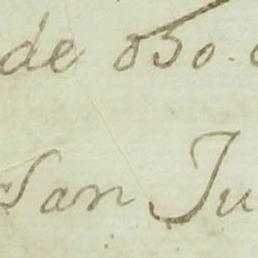 de 850.
San Ju